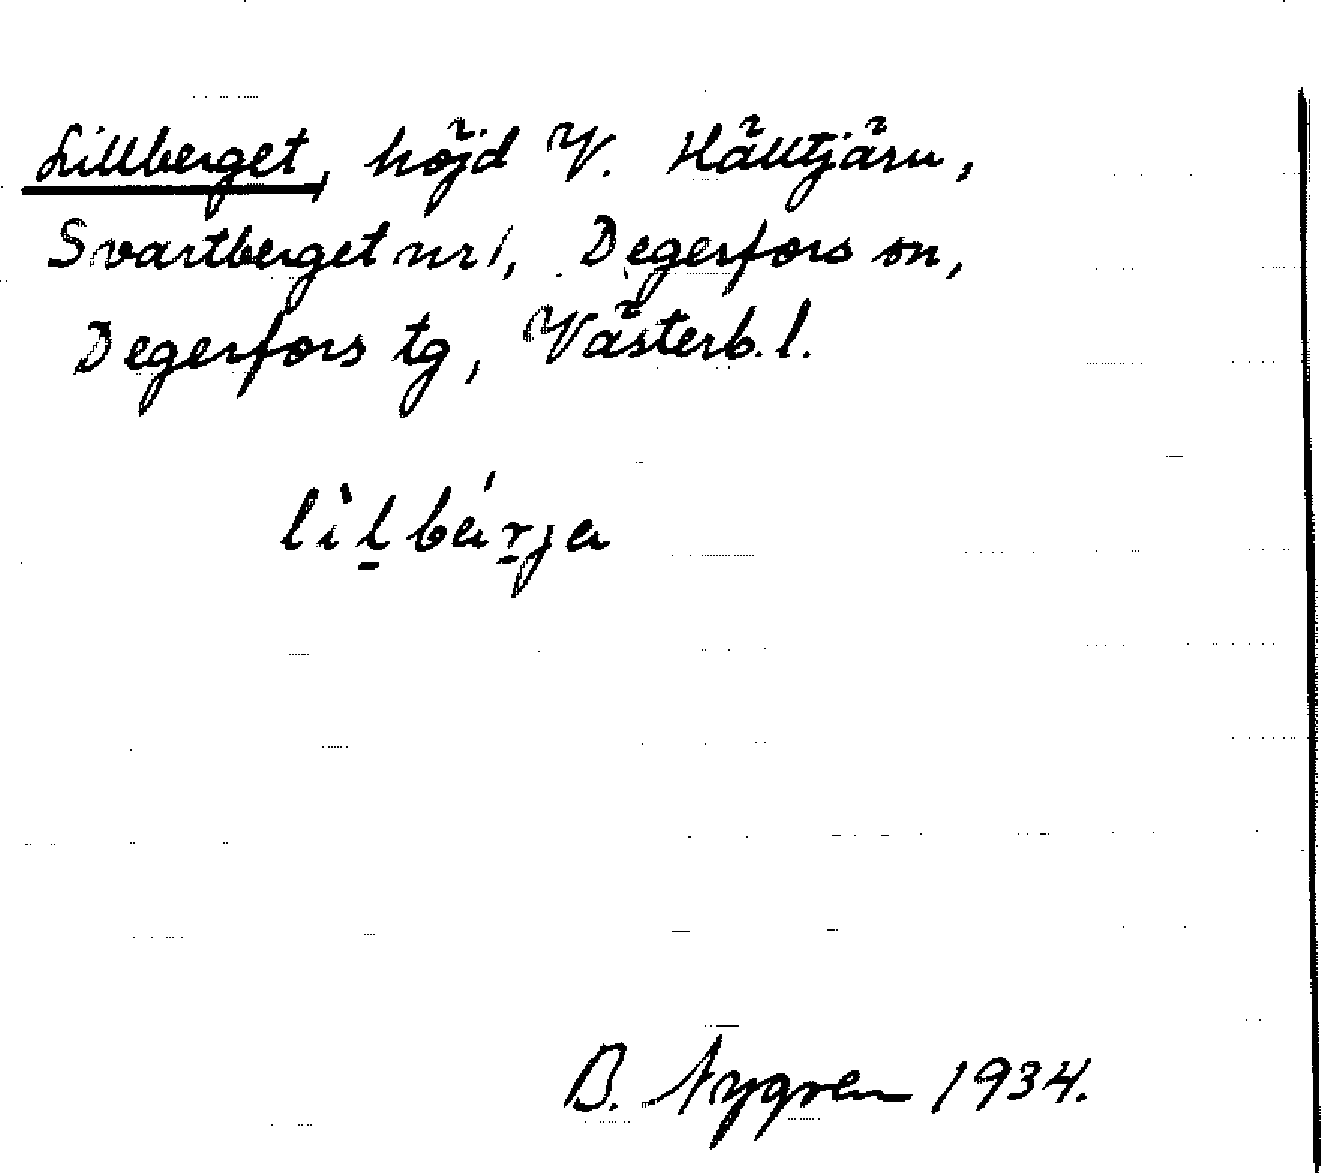 Lillberget, höjd V. Hälltjärn,
Svartberget nr 1, Degerfors sn,
Degerfors tg, Västerb. l.
lìl̠ bá̈r̠ja
B. Nygren 1934.